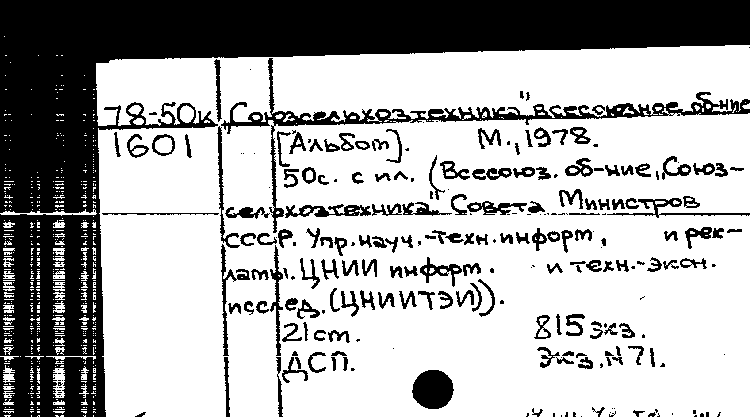 78-50к „Союзсельхозтехника", всесоюзное об-ние
1601 [Альбом]. М., 1978.
50с. с ил. (Всесоюз. об-ние „Союз-
сельхозтехника" Совета Министров
СССР. Упр. науч.-техн. информ. и рек-
ламы. ЦНИИ информ. и техн.-экон.
исслед. (ЦНИИТЭИ)).
21 см. 815 экз.
ДСП. Экз. N 71.